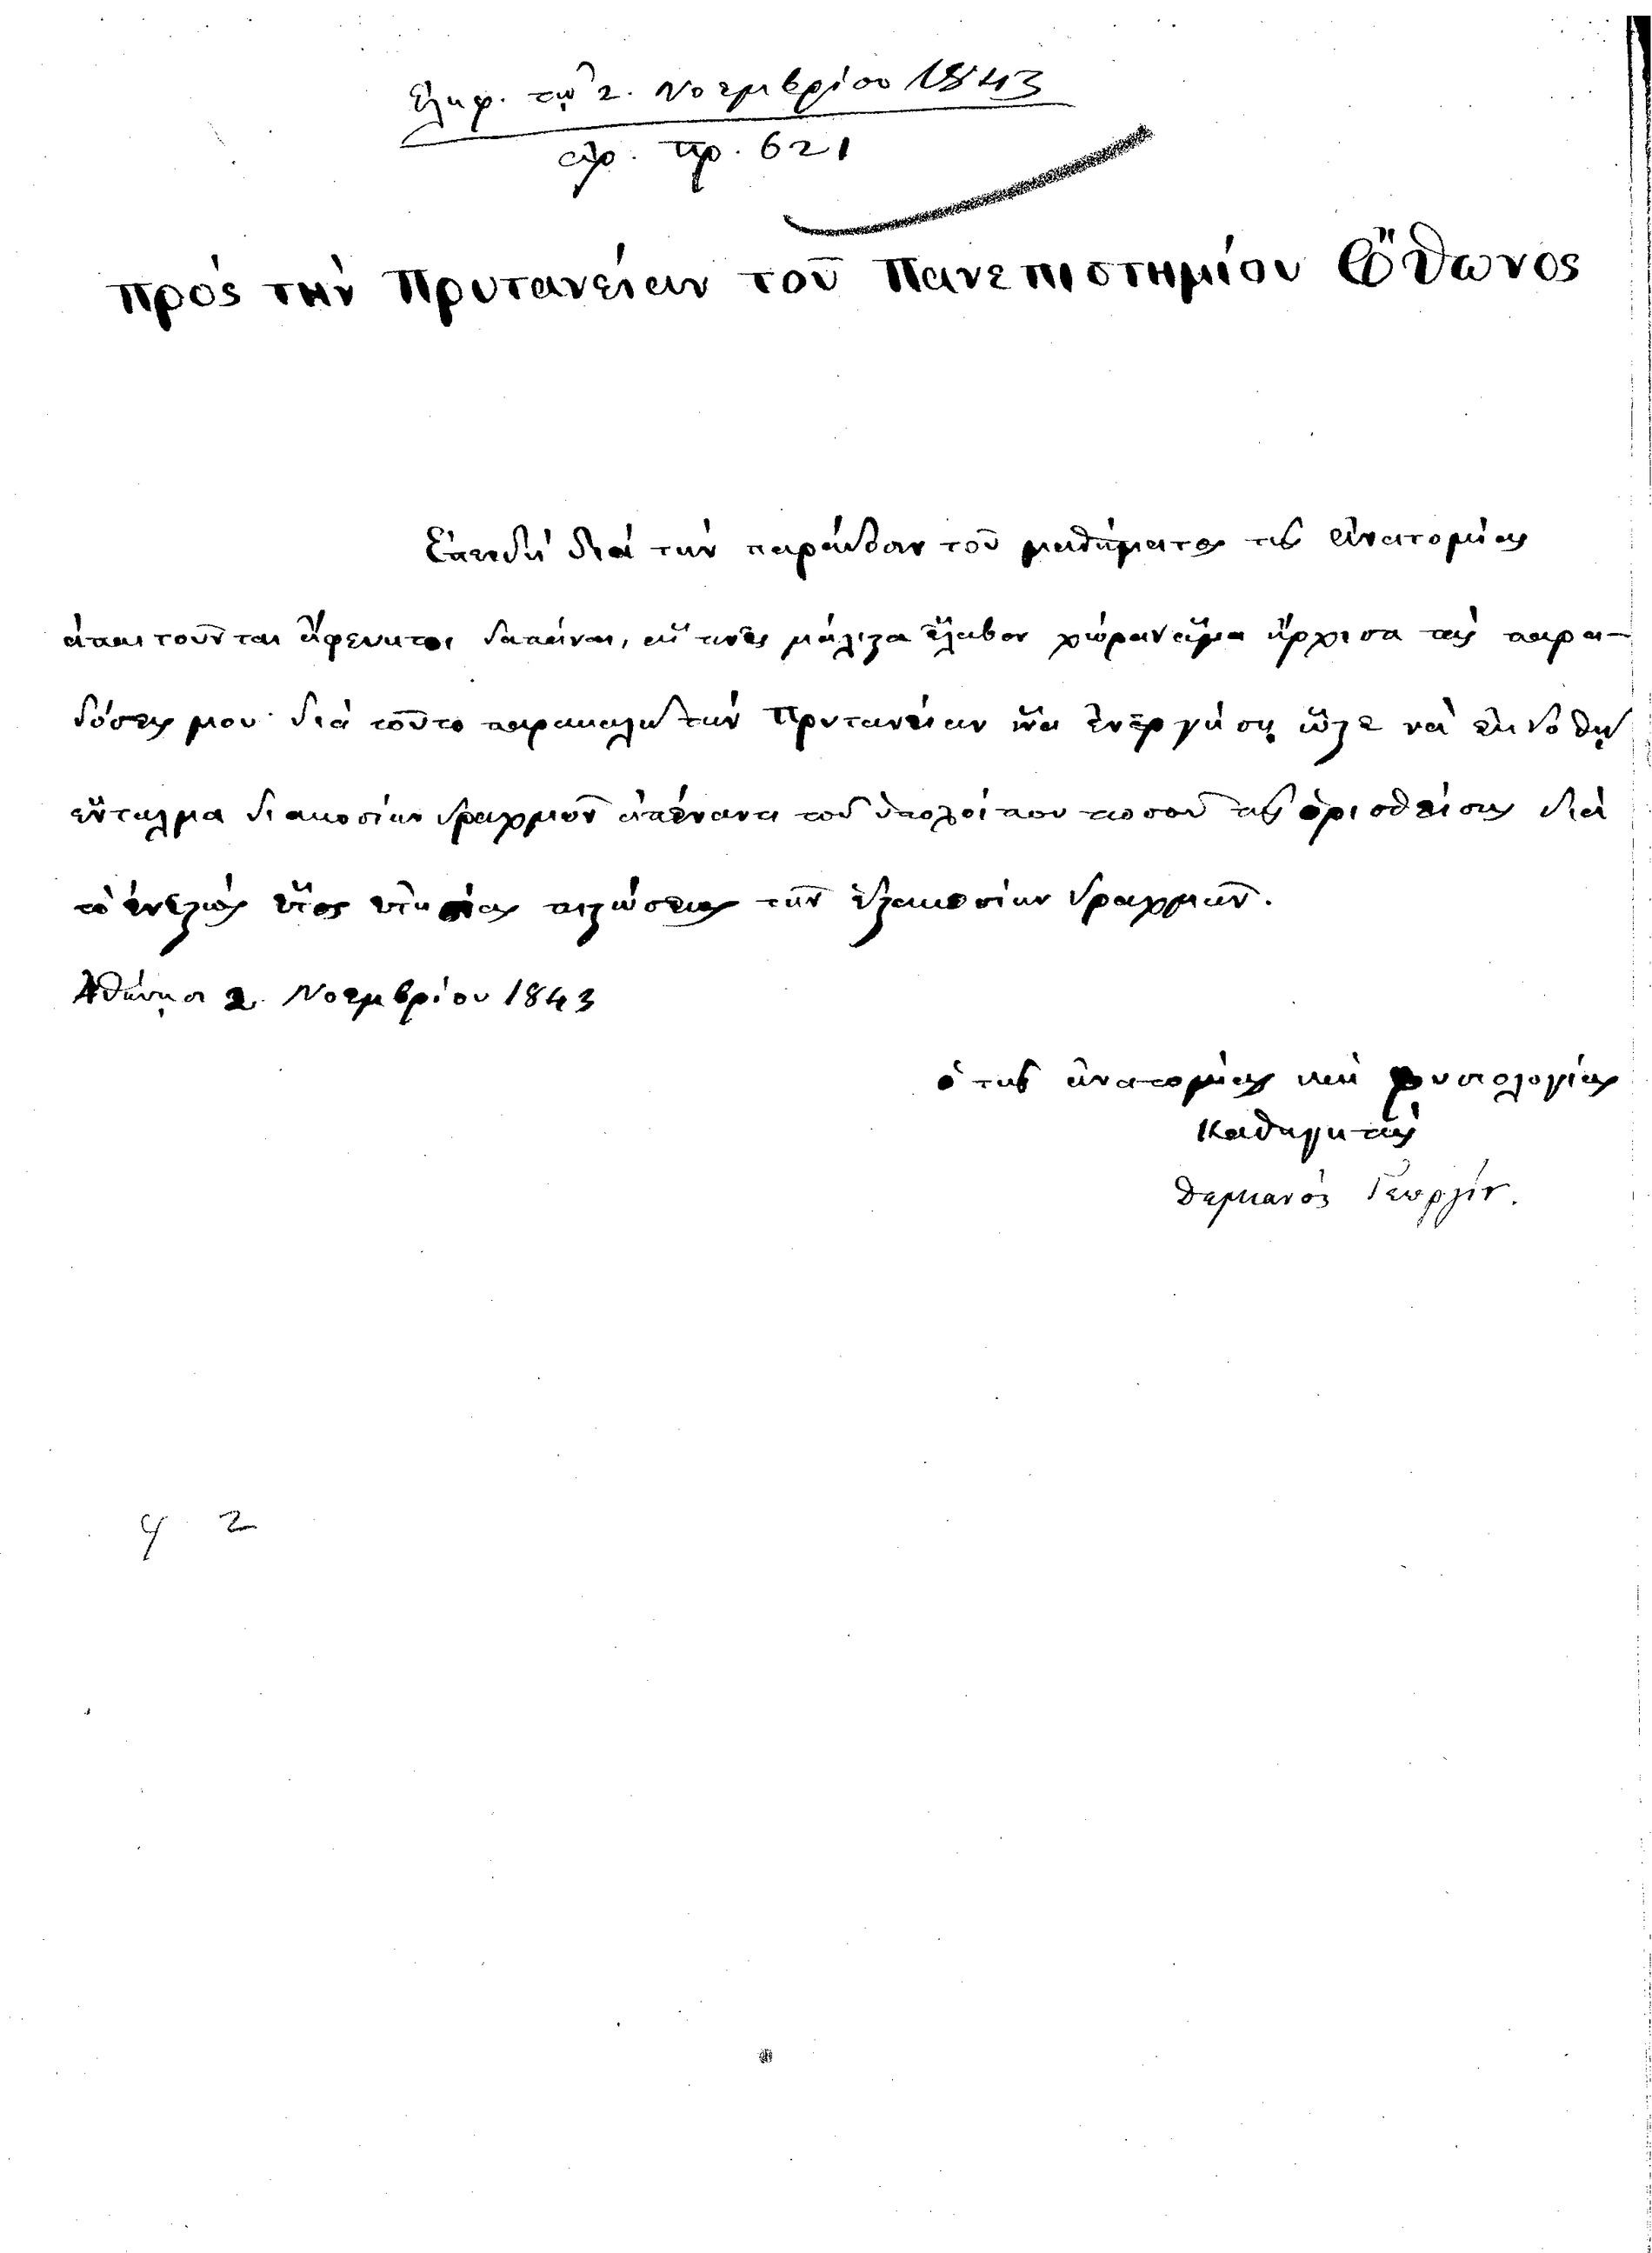 Ἐλήφ. τῇ 2. Νοεμβρίου 1843
ἀρ. πρ. 621
Πρὸς τὴν Πρυτανείαν τοῦ Πανεπιστημίου Ὄθωνος
Ἐπειδὴ διὰ τὴν παράδοσιν τοῦ μαθήματος τῆς Ἀνατομίας
ἀπαιτοῦνται ἄφευκτοι δαπάναι, αἵ τινες μάλιστα ἔλαβον χώραν ἅμα ἤρχισα τὰς παρα-
δόσεις μου· διὰ τοῦτο παρακαλῶ τὴν Πρυτανείαν ἵνα ἐνεργήσῃ ὥστε νὰ ἐκδοθῇ
ἔνταλμα διακοσίων δραχμῶν ἀπέναντι τοῦ ὑπολοίπου ποσοῦ τῆς ὁρισθείσης διὰ
τὸ ἐνεστὸς ἔτος ἐτησίας πιστώσεως τῶν ἑξακοσίων δραχμῶν.
Ἀθήνησι 2 Νοεμβρίου 1843
ὁ τῆς ἀνατομίας καὶ φυσιολογίας
Καθηγητὴς
Δαμιανὸς Γεωργίου.
4 2